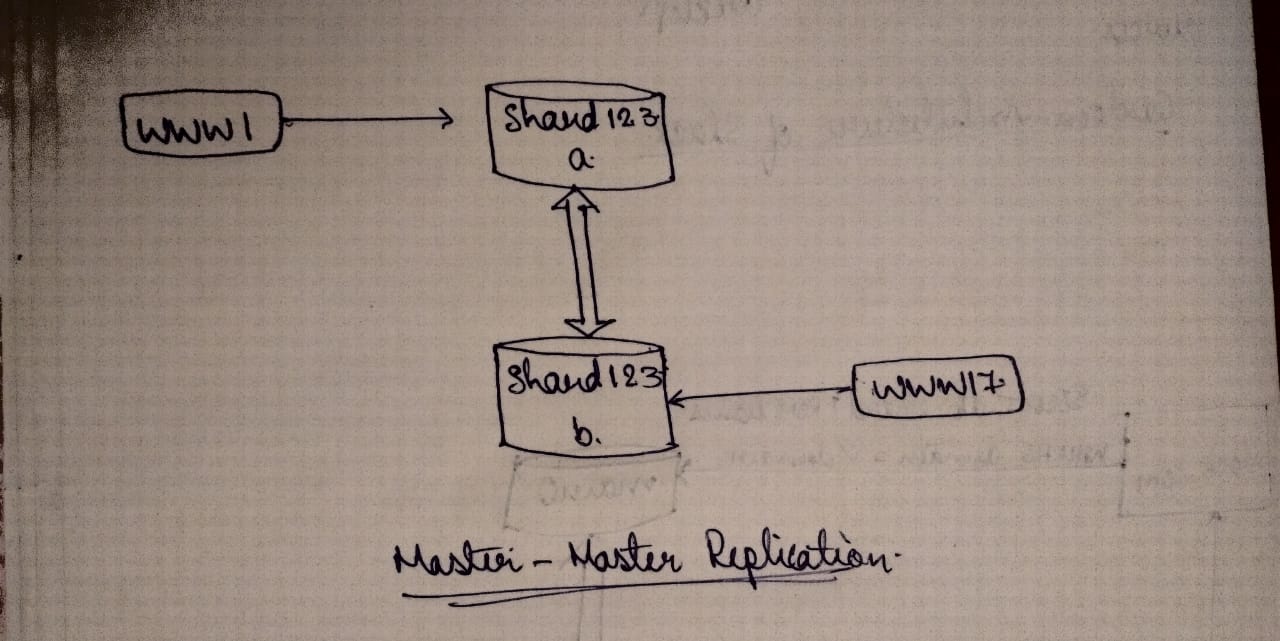 WWW1
Shard 123
a.
Shard 123
b.
WWW17.
Master - Master Replication.